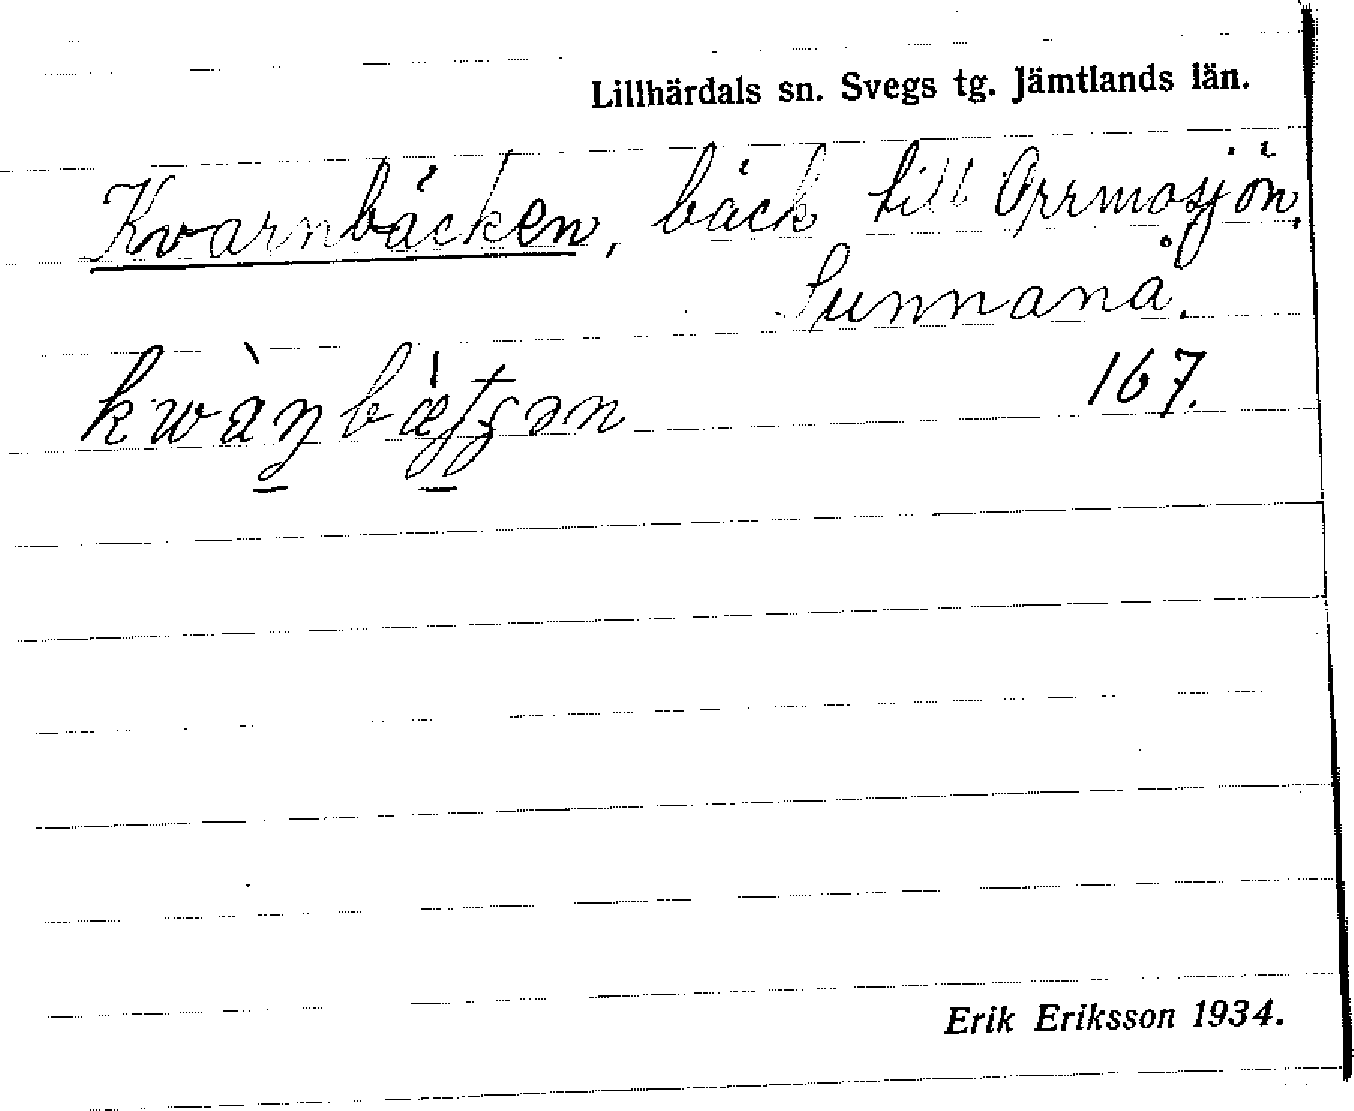 Lillhärdals sn. Svegs tg. Jämtlands län.
Kvarnbäcken, bäck till Orrmosjön,
Sunnanå.
167.
Erik Eriksson 1934.